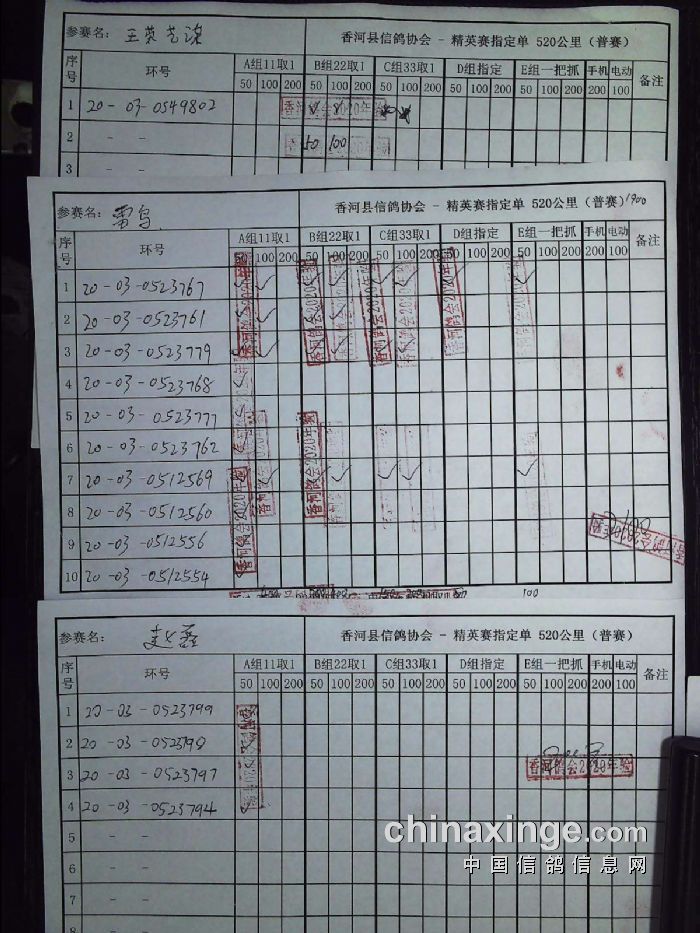 参赛名：
香河县信鸽协会 - 精英赛指定单 520公里（普赛）
序号 环号 A组11取1 B组22取1 C组33取1 D组指定 E组一把抓 手机 电动 备注
50 100 200 50 100 200 50 100 200 50 100 200 50 100 200 200 100
1 20-03-0549802
2 50 100
3
参赛名：雷鸟
香河县信鸽协会 - 精英赛指定单 520公里（普赛）1900
序号 环号 A组11取1 B组22取1 C组33取1 D组指定 E组一把抓 手机 电动 备注
50 100 200 50 100 200 50 100 200 50 100 200 50 100 200 200 100
1 20-03-0523767
2 20-03-0523761
3 20-03-0523779
4 20-03-0523768
5 20-03-0523777
6 20-03-0523762
7 20-03-0512569
8 20-03-0512560
9 20-03-0512556
10 20-03-0512554
100
参赛名：
香河县信鸽协会 - 精英赛指定单 520公里（普赛）
序号 环号 A组11取1 B组22取1 C组33取1 D组指定 E组一把抓 手机 电动 备注
50 100 200 50 100 200 50 100 200 50 100 200 50 100 200 200 100
1 20-03-0523799
2 20-03-0523798
香河鸽会2020年验
3 20-03-0523797
4 20-03-0523794
5 - -
6 - -
7 - -
8
chinaxinge.com
中国信鸽信息网